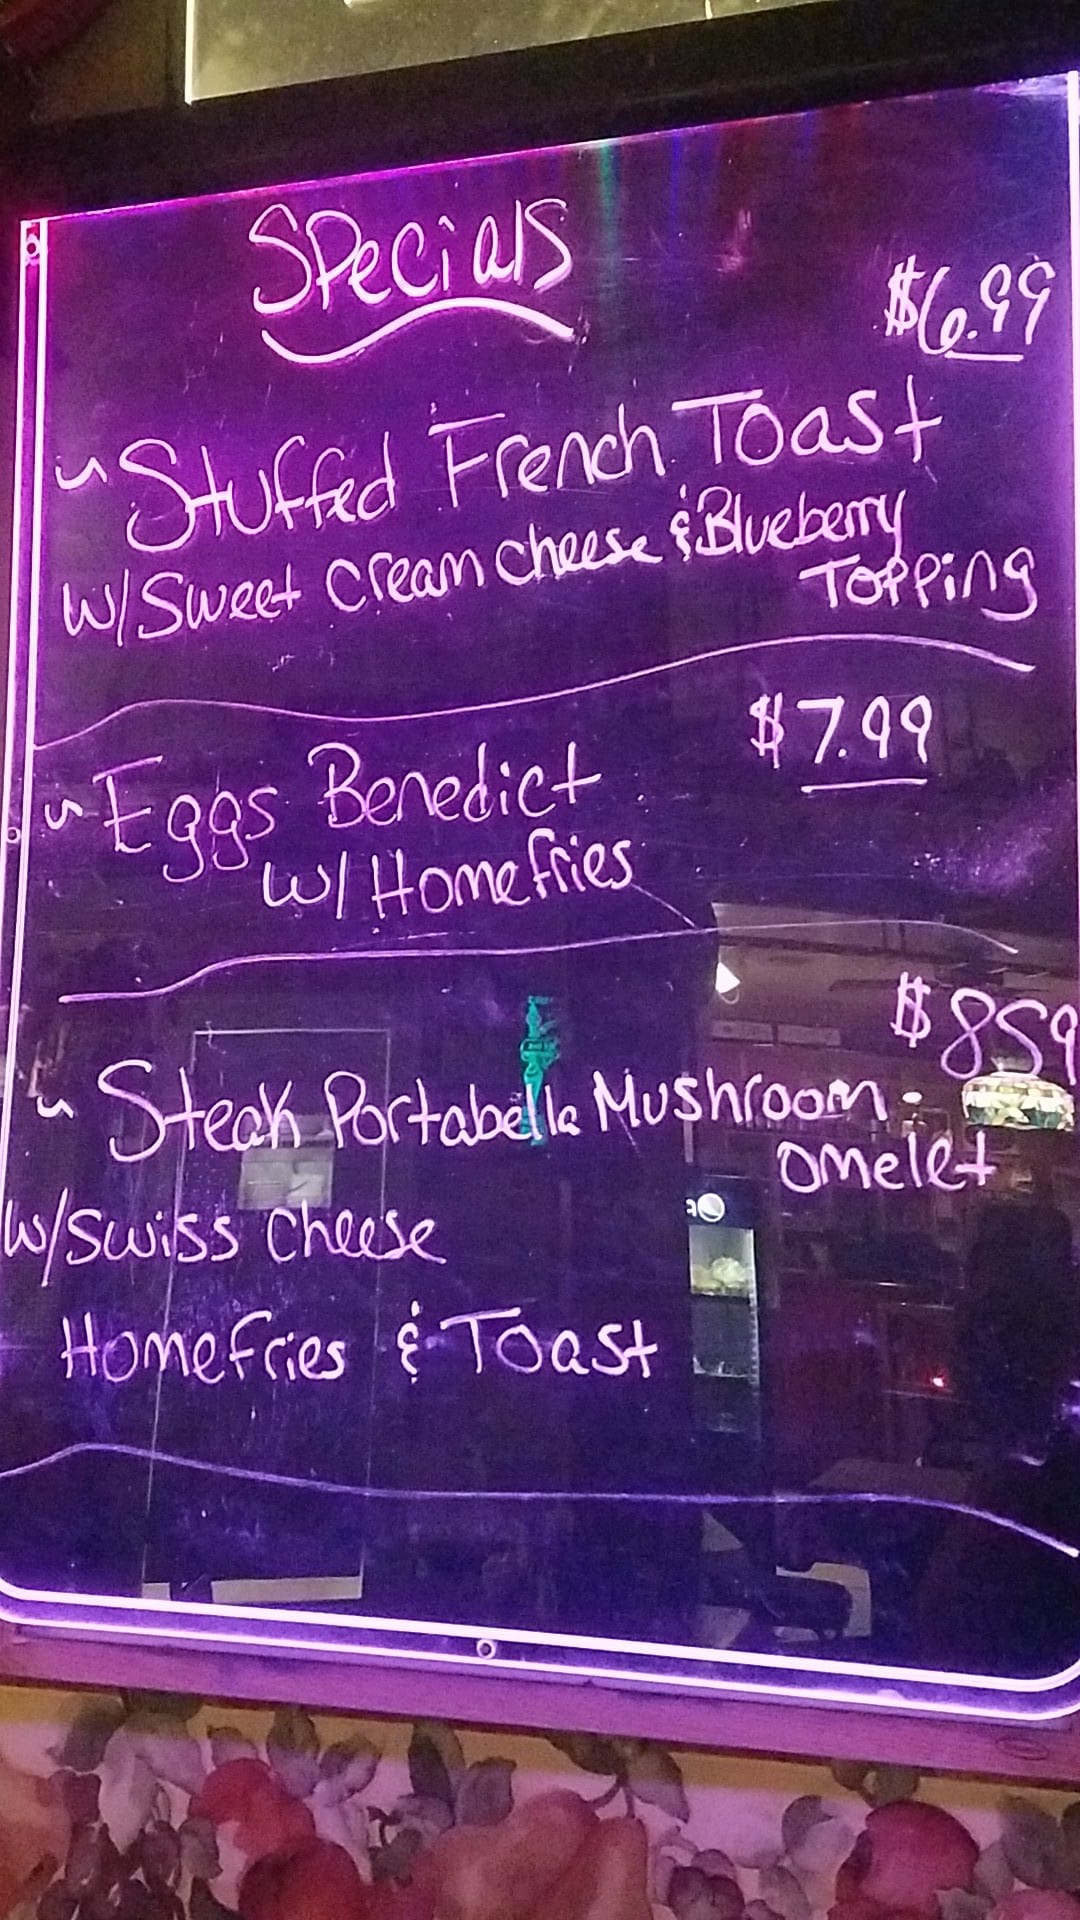 Specials
$6.99
Stuffed French Toast
w/Sweet Cream cheese & Blueberry
Topping
$7.99
Eggs Benedict
w/ Homefries
$859
Steak Portabella Mushroom
omelet
w/swiss cheese
Homefries & Toast